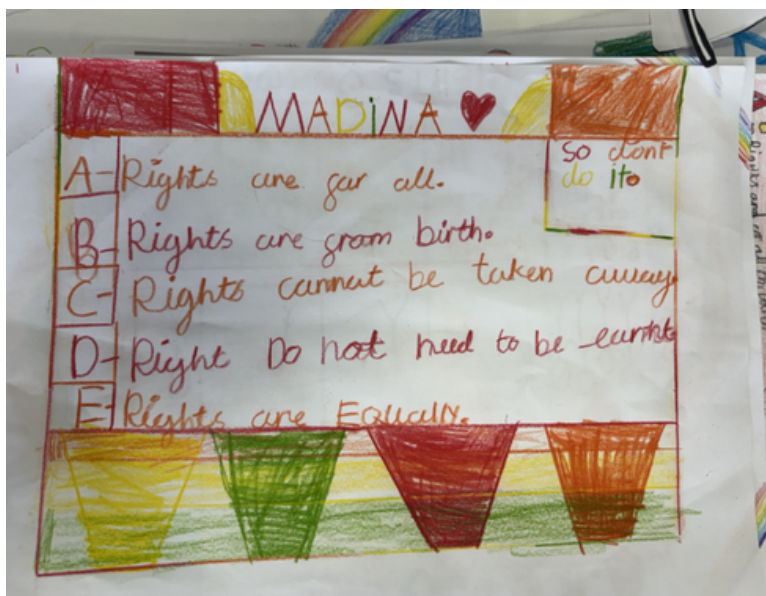 MADINA
so dont
do it.
A- Rights are for all.
B- Rights are from birth.
C- Rights cannot be taken away
D- Right Do not need to be earnt
E- Rights are EQUALLY.